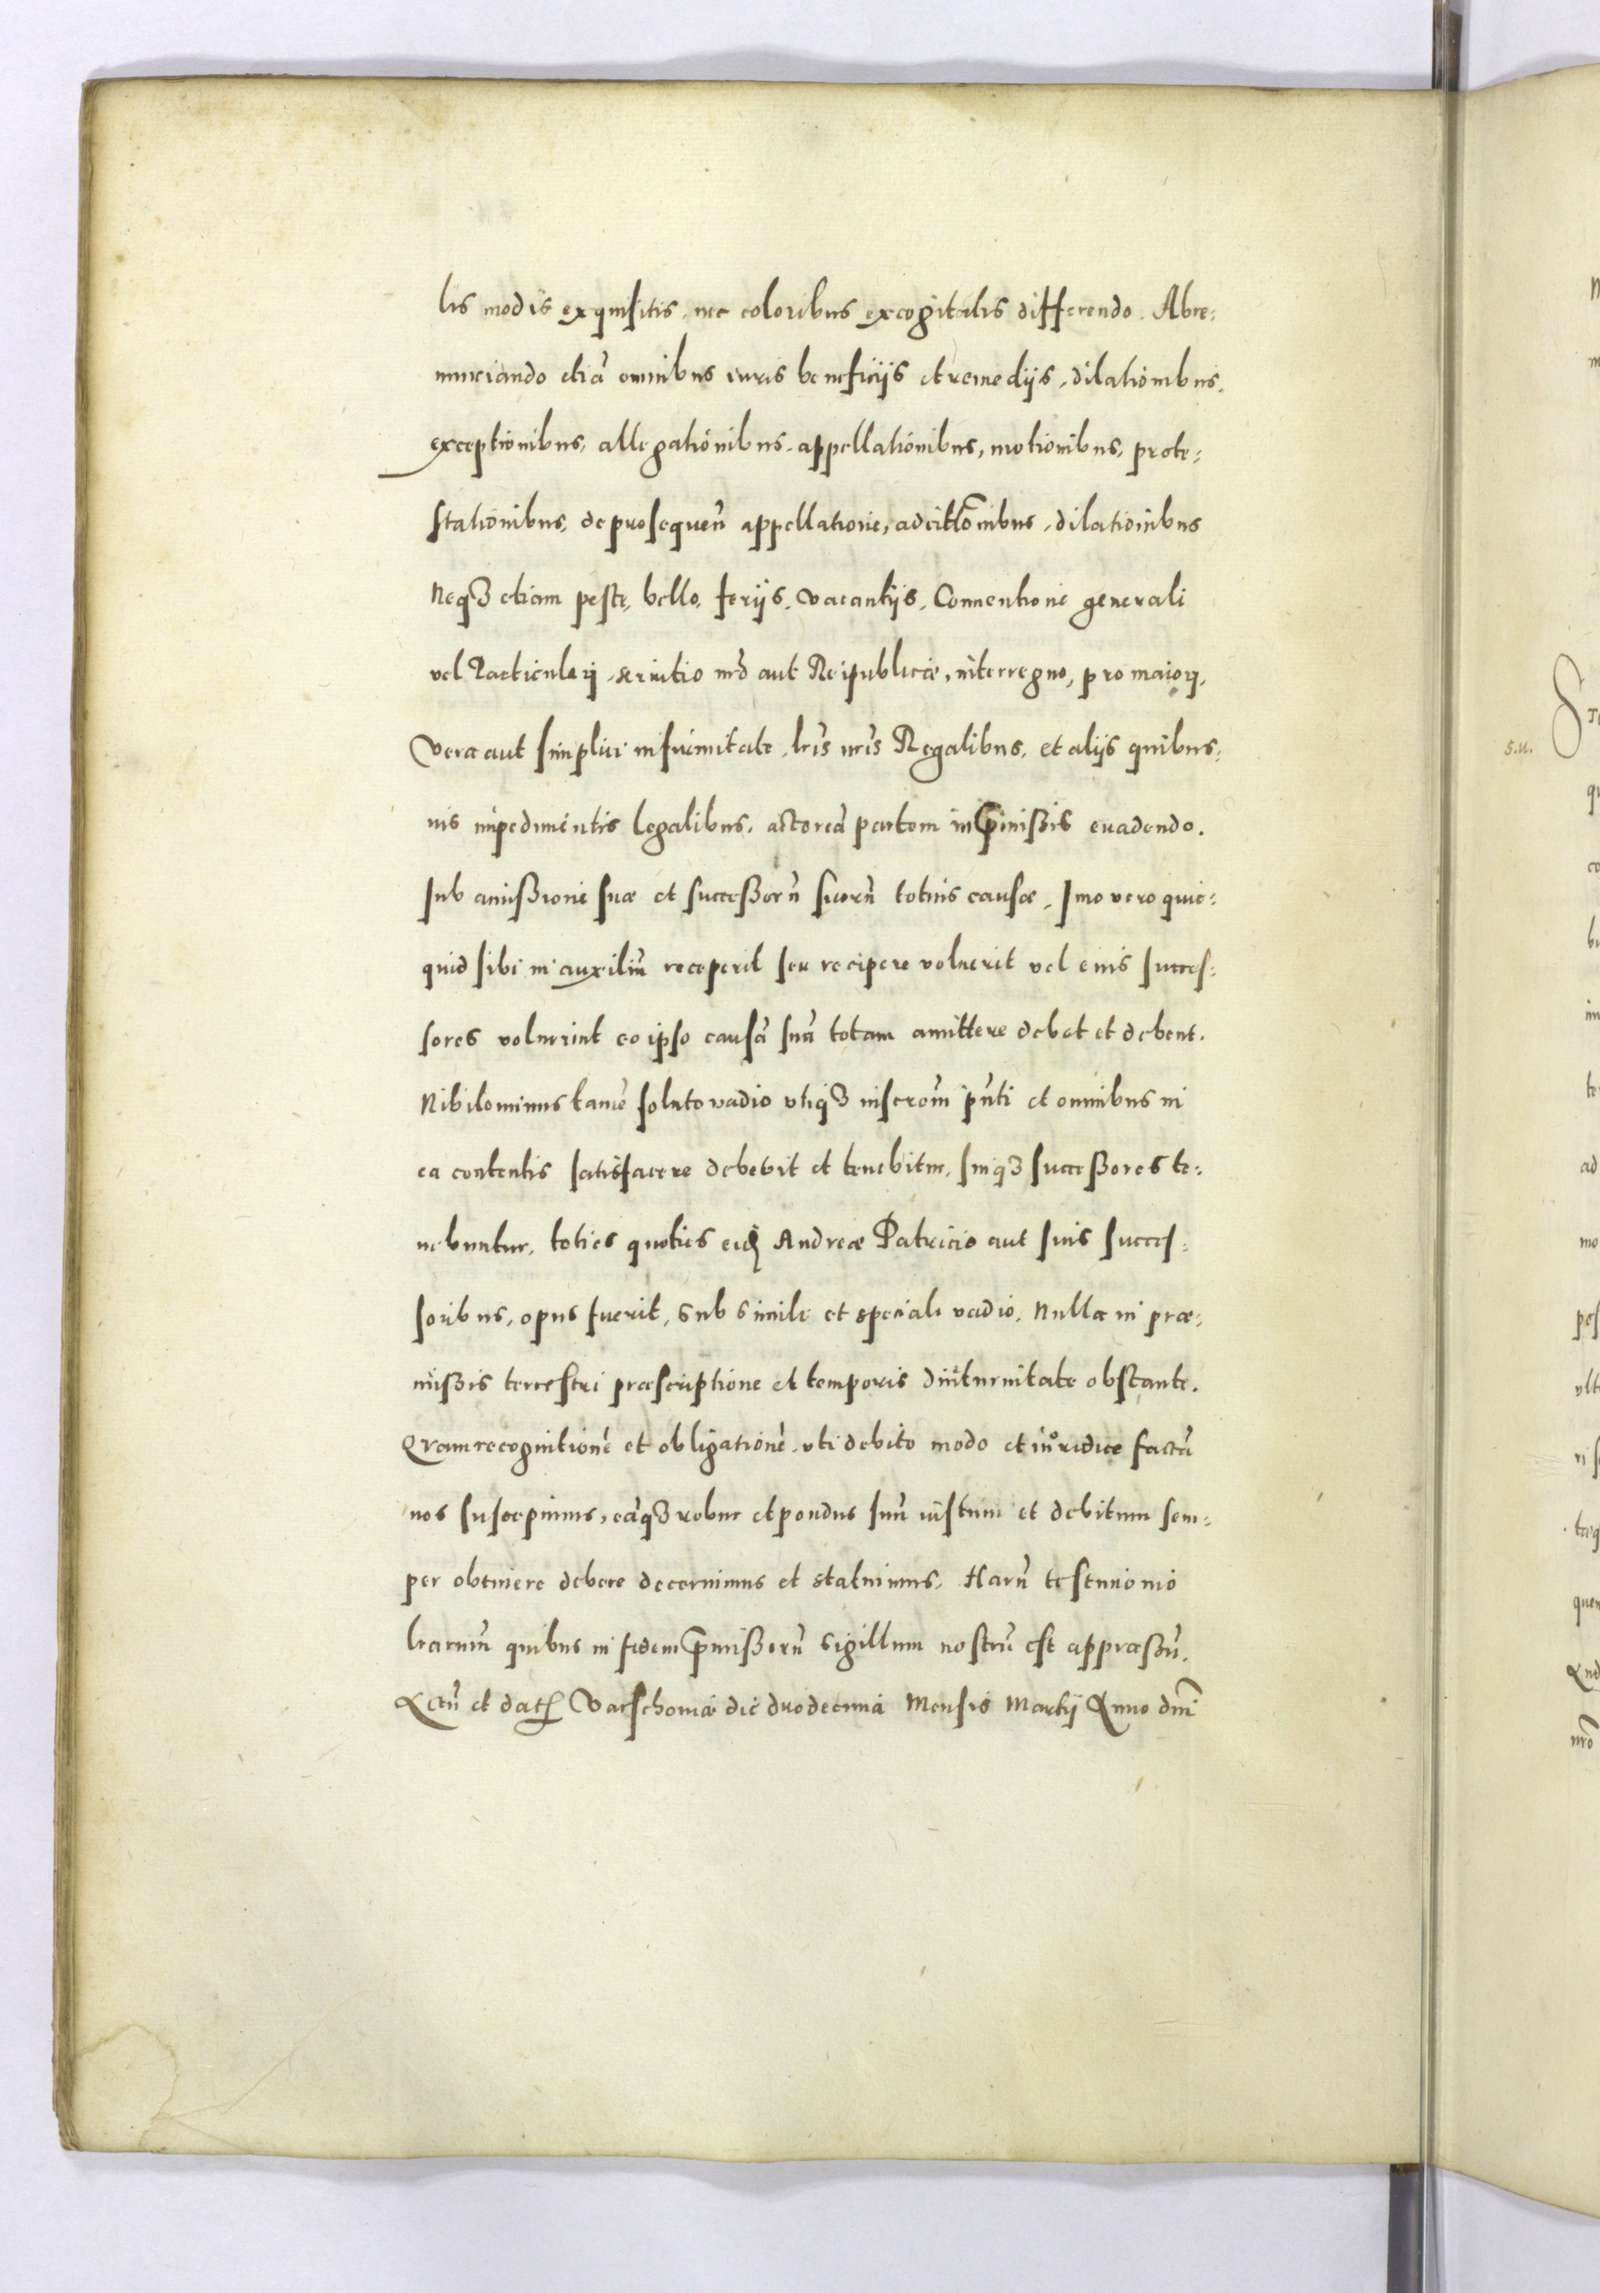 lis modis exquisitis, nec coloribus excogitatis differendo. Abre=
nunciando etiā omnibus iuris beneficijs et remedijs, dilationibus,
exceptionibus, allegationibus, appellationibus, motionibus, prote=
stationibus, de prosequeñ appellatione, adcittōnibus, dilationibus
Neqꝫ etiam peste, bello, ferijs, vacantijs, Conuentione generali
vel Particulari, seruitio nrō aut Reipublicæ, interregno, pro maiori,
Vera aut simplici infirmitate, lris nris Regalibus, et alijs quibus=
uis impedimentis legalibus, actoreā partem in p̄missis euadendo.
sub amissione suæ et successorū suorū totius causæ, Imo vero quic=
quid sibi in auxiliū receperit seu recipere voluerit vel eius succes=
sores voluerint eo ipso causā suā totam amittere debet et debent.
Nihilominus tamē soluto vadio vtiqꝫ inscrōni pn̄ti et omnibus in
ea contentis satisfacere debebit et tenebitur, suiqꝫ successores te=
nebuntur, toties quoties eidē Andreæ Patricio aut suis succes=
soribus, opus fuerit, sub simili et speciali vadio, Nulla in præ=
missis terrestri præscriptione et temporis diuturnitate obstante.
Qvam recognitionē et obligationē, vti debito modo et iuridice factā
nos suscepimus, eāqꝫ robur et pondus suū iustum et debitum sem=
per obtinere debere decernimus et statuimus, Harū testimonio
lrarum quibus in fidem p̄missorū sigillum nostrū est appræssū.
Actū et datū Varschouiæ die duodecima Mensis Martij Anno dnī
5.u.